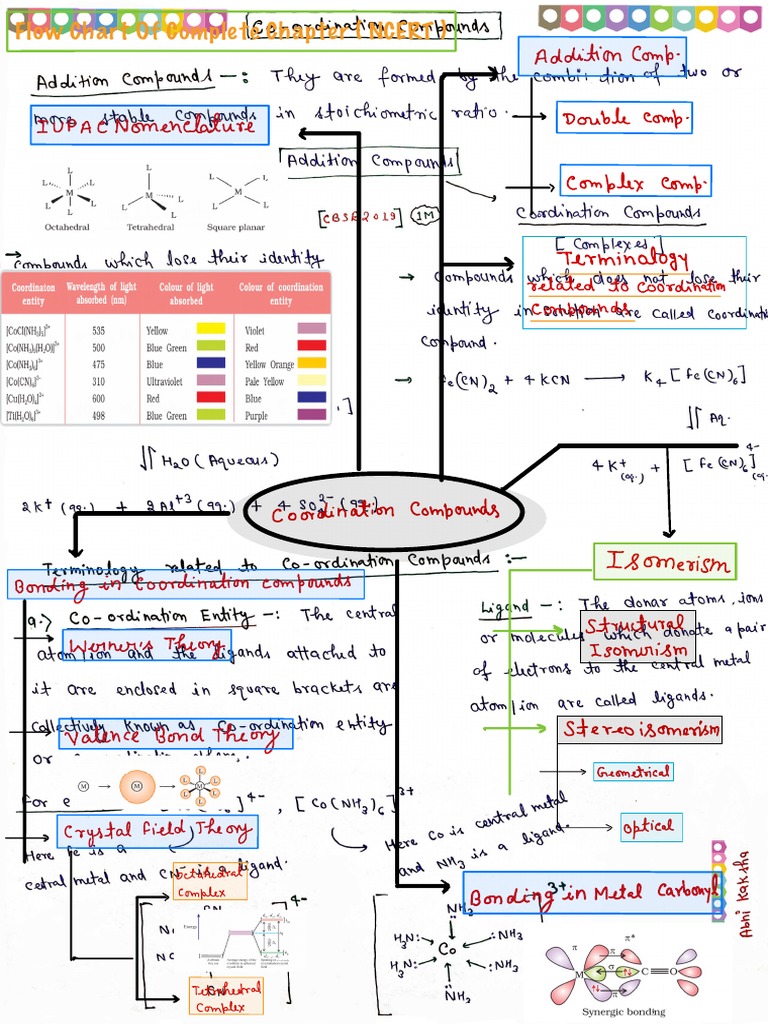 Co-ordination Compounds
Flow Chart Of Complete Chapter (NCERT)
Addition Compounds —: They are formed by the combi tion of two or
more stable compounds in stoichiometric ratio.
Addition Comp.
IUPAC Nomenclature
Double Comp.
Addition Compounds
Complex Comp.
L L L L L L M
Octahedral
L L L L M
Tetrahedral
L L L L M
Square planar
[CBSE 2019] 1M
Coordination Compounds
[Complexes]
→ Compounds which lose their identity
Terminalogy
related to Coordination
Compounds
→ Compounds which does not lose their
identity in are called coordinati
compound.
Coordinaton entity | Wavelength of light absorbed (nm) | Colour of light absorbed | Colour of coordination entity
[CoCl(NH₃)₅]²⁺ 535 Yellow Violet
[Co(NH₃)₅(H₂O)]³⁺ 500 Blue Green Red
[Co(NH₃)₆]³⁺ 475 Blue Yellow Orange
[Co(CN)₆]³⁻ 310 Ultraviolet Pale Yellow
[Cu(H₂O)₄]²⁺ 600 Red Blue
[Ti(H₂O)₆]³⁺ 498 Blue Green Purple
→ Fe(CN)₂ + 4KCN ⟶ K₄[Fe(CN)₆]
Aq.
4K⁺(aq.) + [Fe(CN)₆]⁴⁻(aq.
H₂O (Aqueous)
2K⁺(aq.) + 2Al⁺³(aq.) + 4SO₄²⁻(aq.)
Coordination Compounds
Terminology related to Co-ordination Compounds :-
Bonding in Coordination compounds
Isomerism
a.) Co-ordination Entity —: The central
atom/ion and the ligands attached to
it are enclosed in square brackets are
collectively known as Co-ordination entity
or
Werner's Theory
Valence Bond Theory
Ligand —: The donar atoms, ions
or molecules which donate a pair
of electrons to the central metal
atom/ion are called ligands.
Structural
Isomerism
Stereoisomerism
Geometrical
Optical
M → M → M L L L L L L
For e ]⁴⁻, [Co(NH₃)₆]³⁺
Crystal field Theory
Here Fe is a
cetral metal and CN⁻ is a ligand.
Here Co is central metal
and NH₃ is a ligand.
Octahedral
Complex
Tetrahedral
Complex
4-
Energy
Bonding in Metal Carbonyl
3+
NH₃
H₃N: :NH₃
Co
H₃N: :NH₃
NH₃
π π π*
M σ C O
π
Synergic bonding
Abhi Kaksha